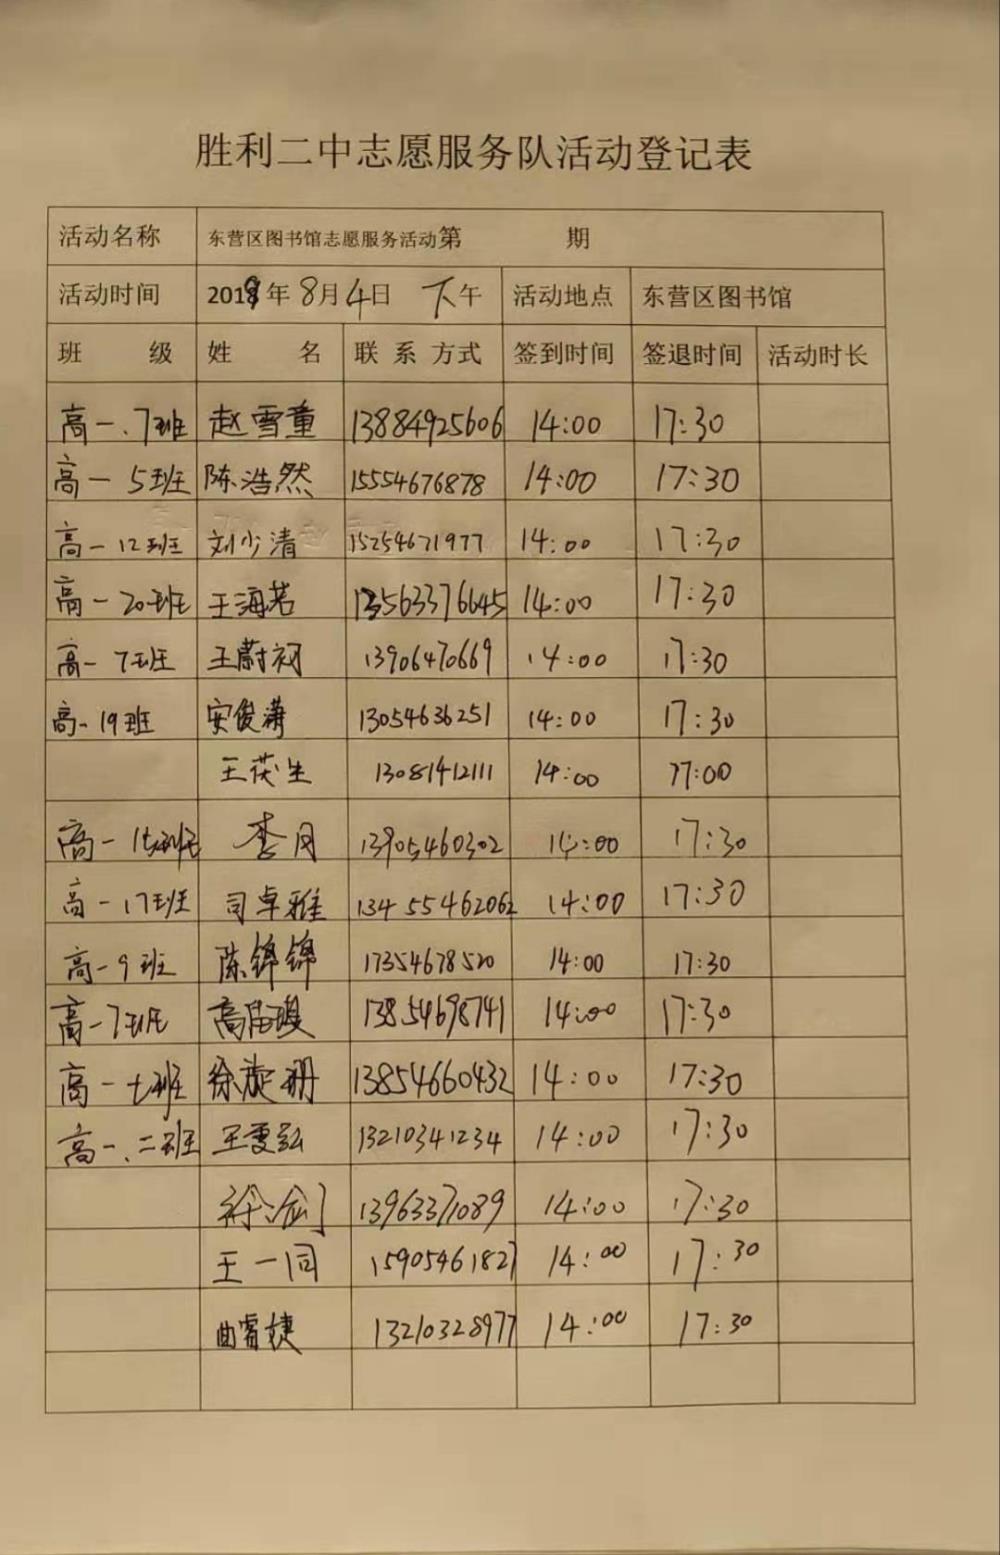 胜利二中志愿服务队活动登记表
活动名称 东营区图书馆志愿服务活动第 期
活动时间 2019年8月4日 下午 活动地点 东营区图书馆
班 级 姓 名 联系方式 签到时间 签退时间 活动时长
高一.7班 赵雪童 13884925606 14:00 17:30
高一 5班 陈浩然 15554676878 14:00 17:30
高一12班 刘少清 15254671977 14:00 17:30
高一20班 王海若 13563376645 14:00 17:30
高一 7班 王蔚初 13906470669 14:00 17:30
高一19班 安俊潇 13054636251 14:00 17:30
王茯生 13081412111 14:00 17:00
高一15班 李月 13905460302 14:00 17:30
高一17班 司卓雅 13455462062 14:00 17:30
高一9班 陈锦锦 17354678520 14:00 17:30
高一7班 13854698741 14:00 17:30
高一七班 徐旋珊 13854660432 14:00 17:30
高一.二班 王雯弘 13210341234 14:00 17:30
13963371089 14:00 17:30
王一同 15905461827 14:00 17:30
曲睿婕 13210328977 14:00 17:30